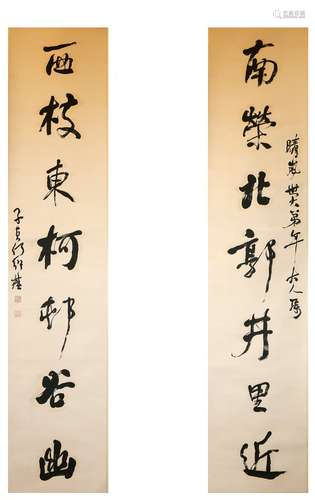 南榮北郭井里近
晴嵐世大弟年大人屬
西枝東柯邨谷幽
子貞何紹基